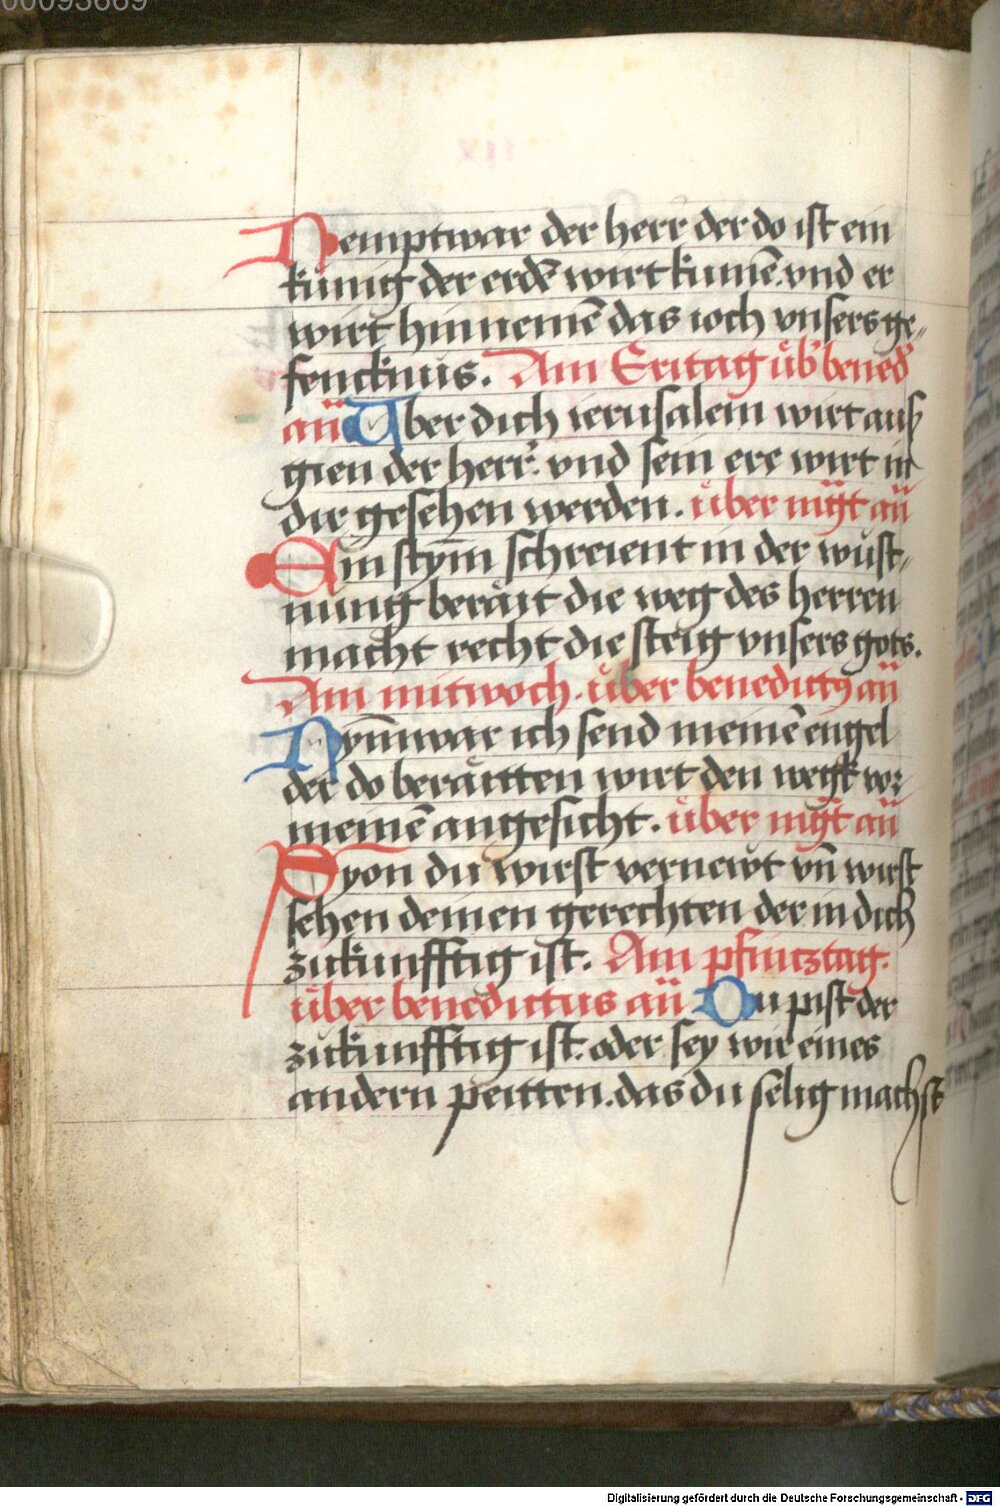 00093669
Nemptwar der herr der do ist ein
künig der erdē wirt kumē. vnd er
wirt hin nemē das ioch vnsers ge⸗
fencknus. Am Eritag üb̾ bened̾
an̄ Uber dich ierusalem wirt auf
gien der herr. vnd sein ere wirt in
dir gesehen werden. über mḡt an̄
Ain stym̄ schreient in der wüst⸗
nung berait die weg des herren
macht recht die steig vnsers gots.
Am mitwoch. über benedictꝯ an̄
Nym̄war ich send meinē engel
der do beraitten wirt den weg vor
meinē angesicht. über mḡt an̄
Syon du wirst vernewt vn̄ wirst
sehen deinen gerechten der in dich
zukunfftig ist. Am pfincztag.
über benedictus an̄ Du pist der
zukunfftig ist. oder sey wir eines
andern peitten. das du selig machst
Digitalisierung gefördert durch die Deutsche Forschungsgemeinschaft - DFG